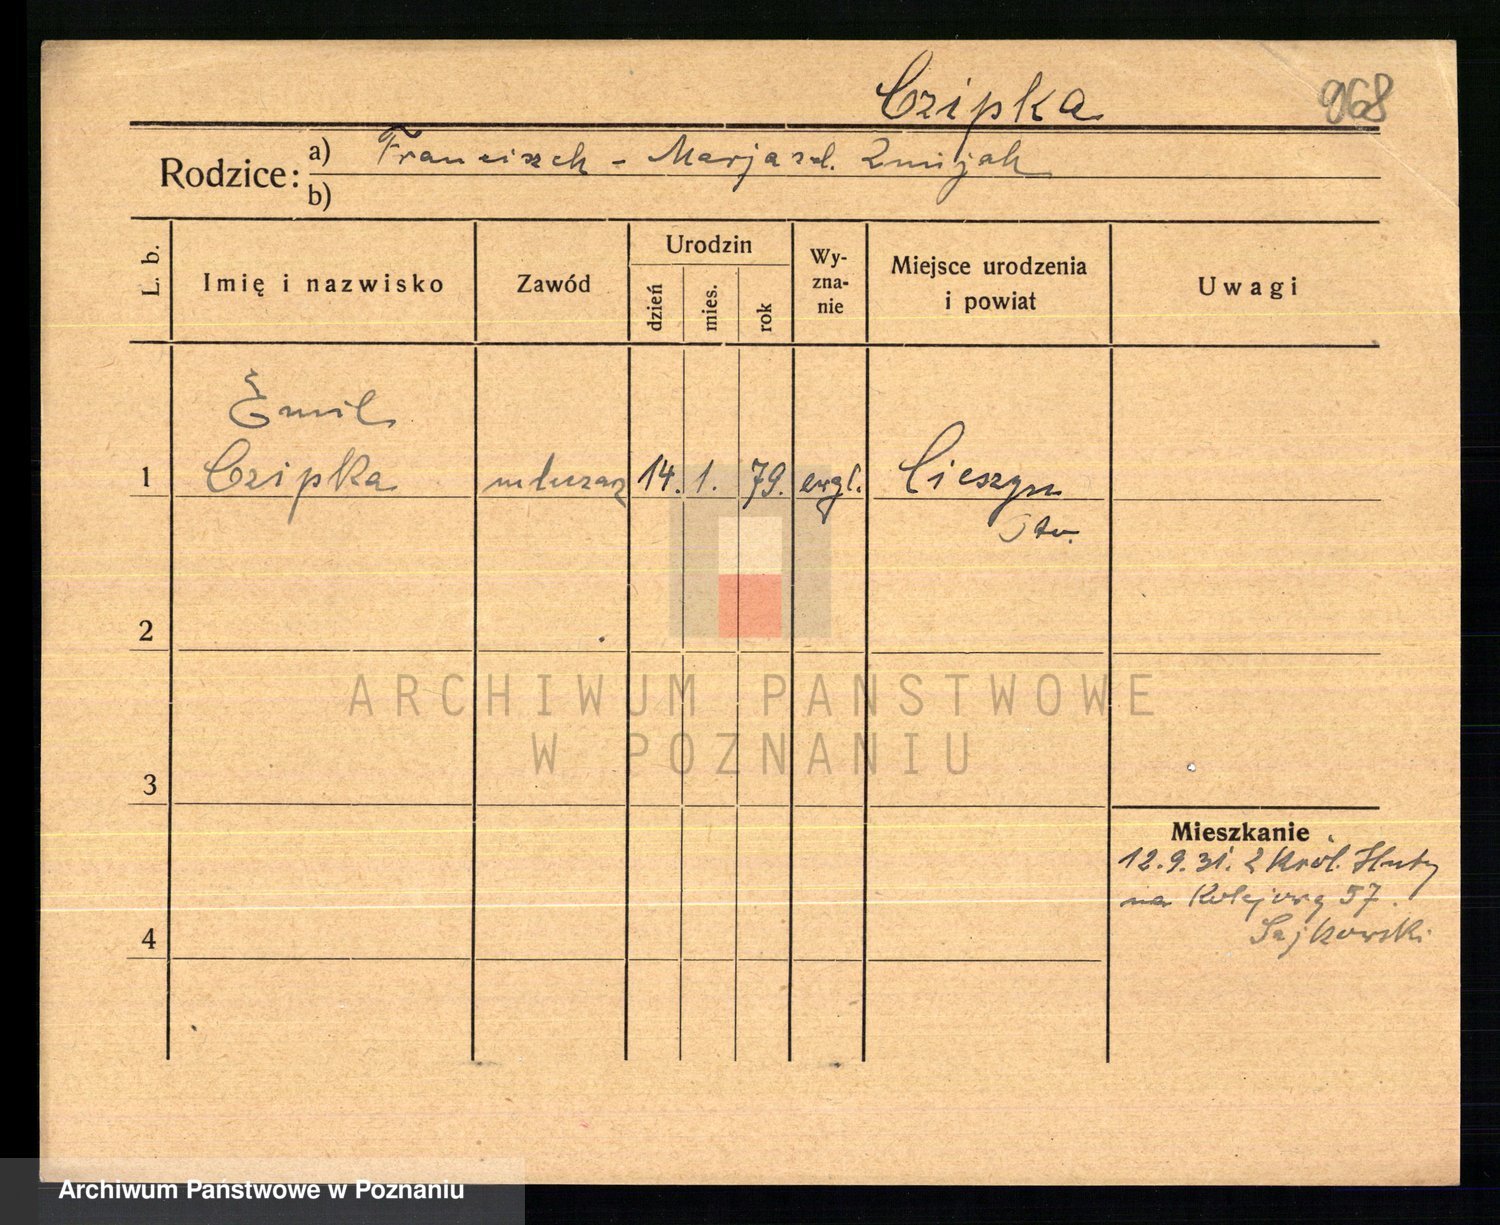 Czipka
968
Rodzice:
a) Franciszek - Marja zd. Zmijak
b)
L. b.
Imię i nazwisko
Zawód
Urodzin
dzień
mies.
rok
Wy-
zna-
nie
Miejsce urodzenia
i powiat
Uwagi
Emil
1 Czipka ślusarz 14. 1. 79. ewgl. Cieszyn
2
ARCHIWUM PAŃSTWOWE
W POZNANIU
3
Mieszkanie
12.9.31. z Król. Huty
na Kolejową 57.
4
Archiwum Państwowe w Poznaniu